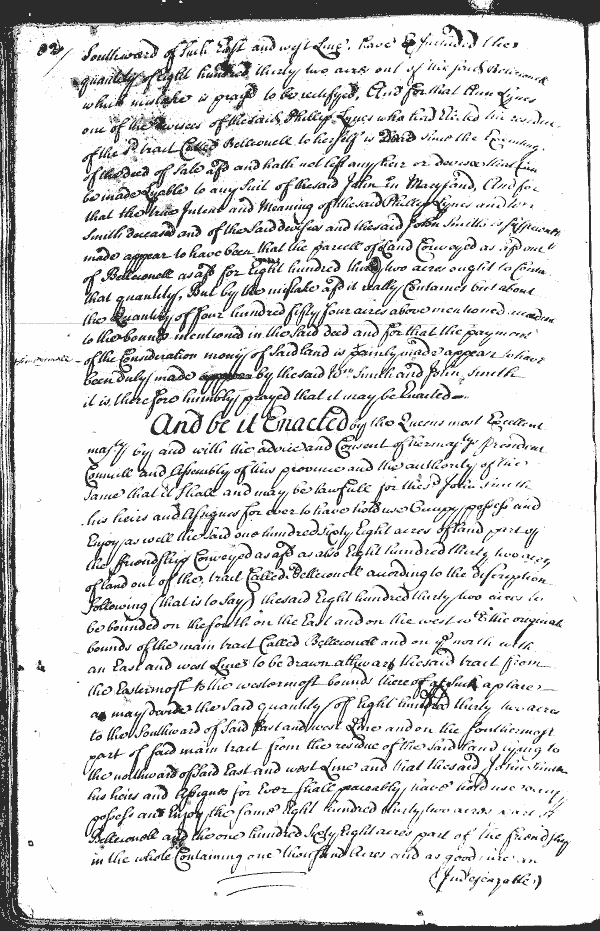 82
Southward of such East and west Line. have Excluded the
quantity of Eight hundred thirty two acres out of the said Bellevonell
which mistake is prayd to be rectifyed, And for that Ann Lynes
one of the devisees of the said Phillip Lynes who had the residue
of the sd tract Called Bellevonell to herself is Dead since the Executing
of the deed of Sale afd and hath not left any heir or devisee that can
be made lyable to any Suit of the said John in Maryland, And for
that the true Intent and Meaning of the said Phillip Lynes and Wm
Smith deceased and of the Said devisees and the said John Smith is sufficiently
made appear to have been that the parcell of Land Conveyed as afd out
of Bellevonell as afd for Eight hundred thirty two acres ought to Contain
that quantity, But by the mistake afd it really Containes but about
the Quantity of four hundred fifty four acres above mentioned according
to the bounds mentioned in the said deed and for that the payment
of the Consideration money of Said land is plainly made appear to have
been duly made by the said Wm Smith and John Smith
it is therefore humbly prayed that it may be Enacted
And be it Enacted by the Queens most Excellent
maty by and with the advice and Consent of her matys President
Councill and Assembly of this province and the authority of the
same that it shall and may be lawfull for the sd John Smith
his heirs and Assignes for ever to have hold use Occupy possess and
Enjoy as well the said one hundred Sixty Eight acres of land part of
the friendship Conveyed as afd as also Eight hundred thirty two acres
of land out of the tract Called Bellevonell according to the discription
following (that is to Say) the said Eight hundred thirty two acres to
be bounded on the south on the East and on the west with the original
bounds of the main tract Called Bellevonell and on ye north with
an East and west Line to be drawn athwart the said tract from
the Eastermost to the westermost bounds thereof at such a place
as may divide the said quantity of Eight hundred thirty two acres
to the Southward of Said East and west Line and on the southermost
part of said main tract from the residue of the said land lying to
the northward of said East and west Line and that the said John Smith
his heirs and Assignes for Ever shall peaceably have hold use occupy
possess and Enjoy the same Eight hundred thirty two acres part of
Bellevonell and the one hundred Sixty Eight acres part of the friendship
in the whole Containing one thousand Acres and as good sure an
(Indefeazable)